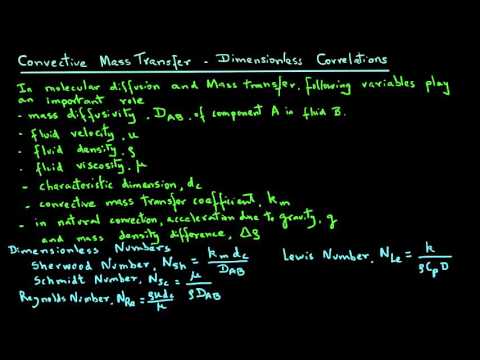 Convective Mass Transfer - Dimensionless Correlations
In molecular diffusion and Mass transfer, following variables play
an important role
- mass diffusivity, D_AB, of component A in fluid B.
- fluid velocity, u
- fluid density, ρ
- fluid viscosity, μ
- characteristic dimension, d_c
- convective mass transfer coefficient, k_m
- in natural convection, acceleration due to gravity, g
and mass density difference, Δρ
Dimensionless Numbers
Sherwood Number, N_Sh = k_m d_c / D_AB
Lewis Number, N_Le = k / ρ C_p D
Schmidt Number, N_Sc = μ / ρ D_AB
Reynolds Number, N_Re = ρ u d_c / μ